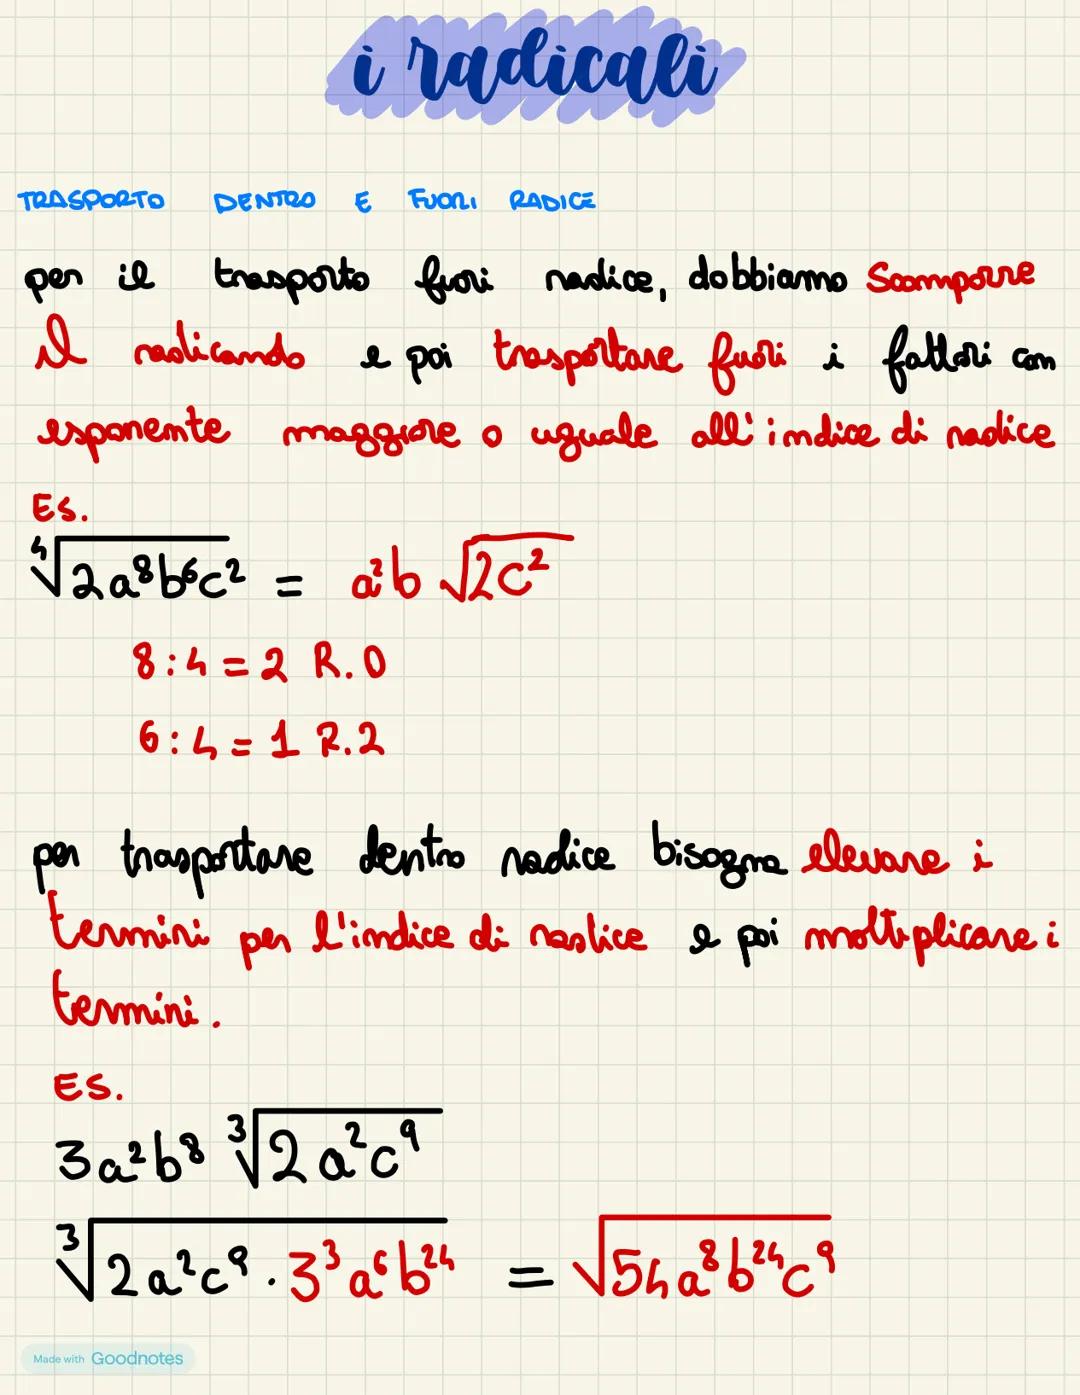 i radicali
TRASPORTO DENTRO E FUORI RADICE
per il trasporto fuori radice, dobbiamo Scomporre
il radicando e poi trasportare fuori i fattori con
esponente maggiore o uguale all'indice di radice
ES.
⁴√2a⁸b⁶c² = a²b √2c²
8:4=2 R.0
6:4=1 R.2
per trasportare dentro radice bisogna elevare i
termini per l'indice di radice e poi moltiplicare i
termini.
ES.
3a²b⁸ ³√2a²c⁹
³√2a²c⁹·3³a⁶b²⁴ = √54a⁸b²⁴c⁹
Made with Goodnotes